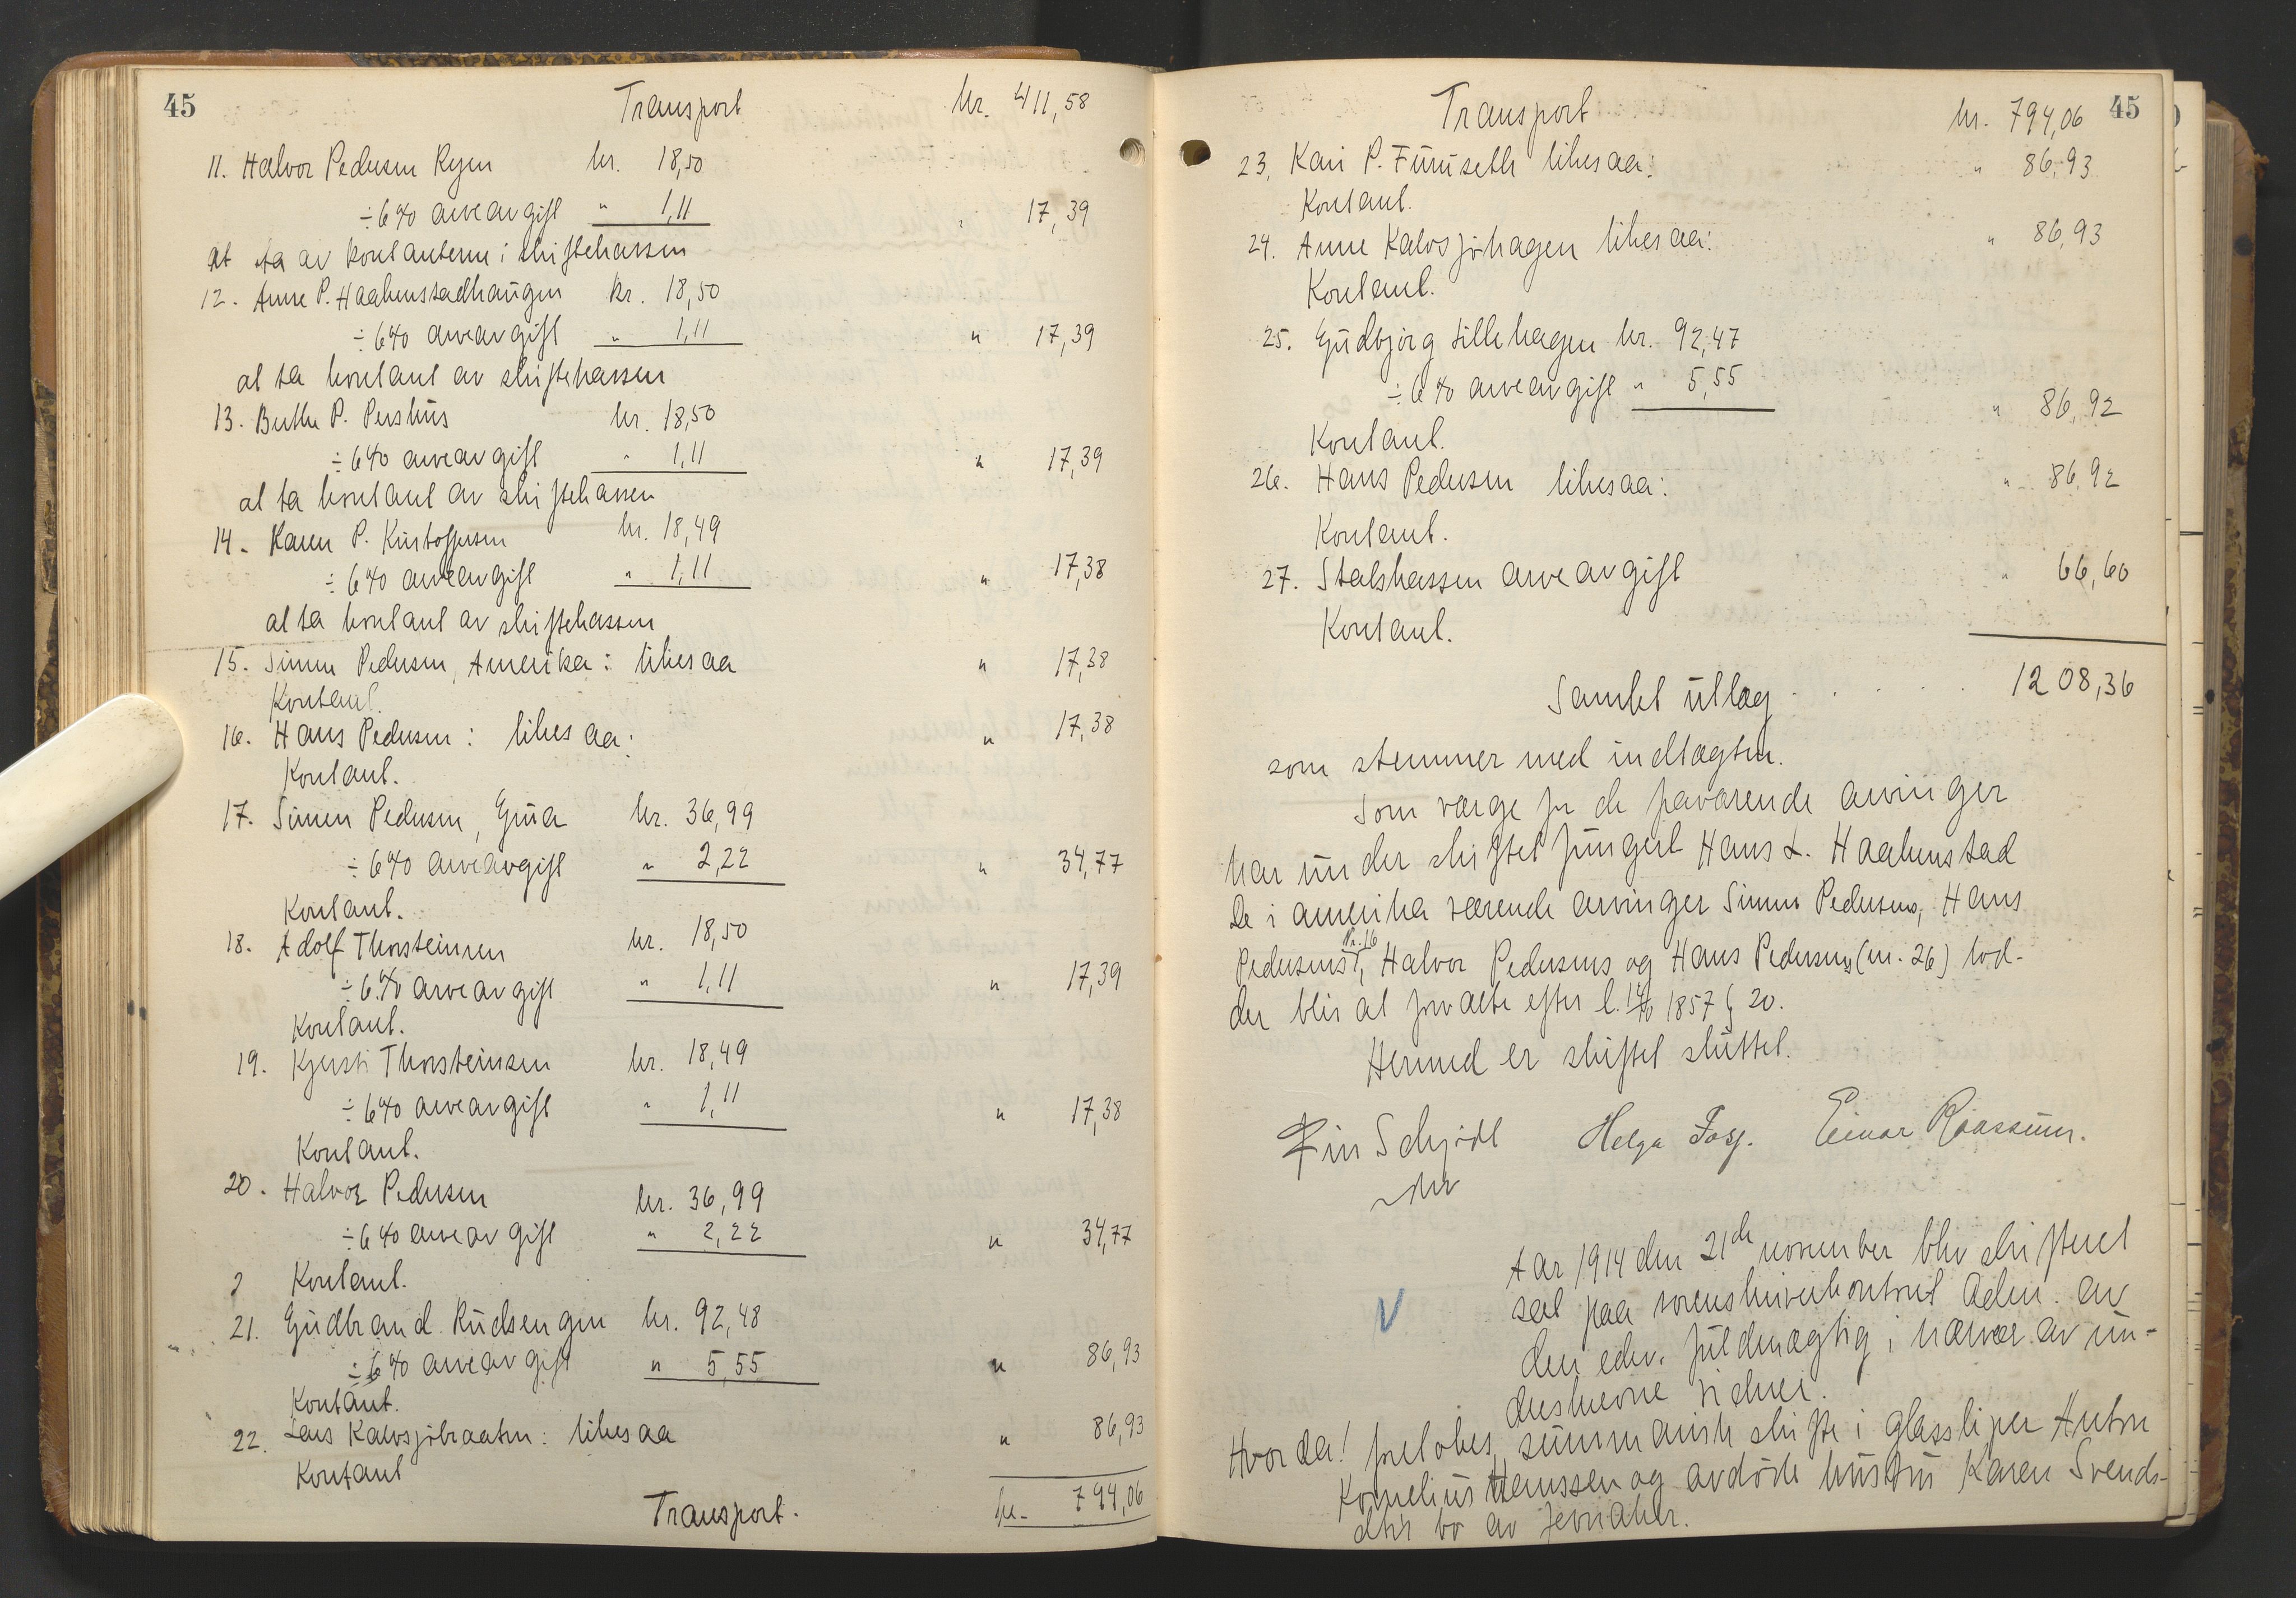 45
Transport kr. 411,58
11. Halvor Pedersen Ryen kr. 18,50
÷ 6% arveavgift " 1,11 " 17,39
at ta av kontanterne i skiftekassen
12. Anne P. Haakenstadhaugen kr. 18,50
÷ 6% arveavgift " 1,11 " 17,39
at ta kontant av skiftekassen
13. Berthe P. Pershus kr. 18,50
÷ 6% arveavgift " 1,11 " 17,39
at ta kontant av skiftekassen
14. Karen P. Kristoffersen kr. 18,49
÷ 6% arveavgift " 1,11 " 17,38
at ta kontant av skiftekassen
15. Simen Pedersen, Amerika: likesaa " 17,38
Kontant.
16. Hans Pedersen: likesaa: " 17,38
Kontant.
17. Simen Pedersen, Grua kr. 36,99
÷ 6% arveavgift " 2,22 " 34,77
Kontant.
18. Adolf Thorsteinsen kr. 18,50
÷ 6% arveavgift " 1,11 " 17,39
Kontant.
19. Kjersti Thorsteinsen kr. 18,49
÷ 6% arveavgift " 1,11 " 17,38
Kontant.
20. Halvor Pedersen kr. 36,99
÷ 6% arveavgift " 2,22 " 34,77
2 Kontant.
21. Gudbrand Rudsengen kr. 92,48
÷ 6% arveavgift " 5,55 " 86,93
Kontant.
22. Lars Kalvsjøbraaten: likesaa " 86,93
Kontant
Transport. kr. 794,06
Transport kr. 794,06 45
23. Kari P. Furuseth likesaa: " 86,93
Kontant.
24. Anne Kalvsjøhagen likesaa: " 86,93
Kontant.
25. Gudbjørg Lillehagen kr. 92,47
÷ 6% arveavgift " 5,55 " 86,92
Kontant.
26. Hans Pedersen likesaa: " 86,92
Kontant.
27. Statskassen arveavgift " 66,60
Kontant.
Samlet utlæg . . . . . 1208,36
som stemmer med indtægten.
Som værge for de fraværende arvinger
har under skiftet fungert Hans L. Haakenstad
De i amerika værende arvinger Simen Pedersens, Hans
Pedersens nr. 16, Halvor Pedersens og Hans Pedersens (nr. 26) lod-
der blir at forvalte efter l. 12/10 1857 § 20.
Hermed er skiftet sluttet.
Fin Schjödt Helga Fosf. Einar Raassum.
Aar 1914 den 21de november blev skifteret
V sat paa sorenskriverkontoret Aden. av
den edsv. fuldmægtig i nærvær av un-
derskrevne vidner.
Hvorda! foretokes summarisk skifte i glassliper Anton
Kornelius Hanssen og avdöde hustru Karen Svends-
dtrs bo av Jevnaker.